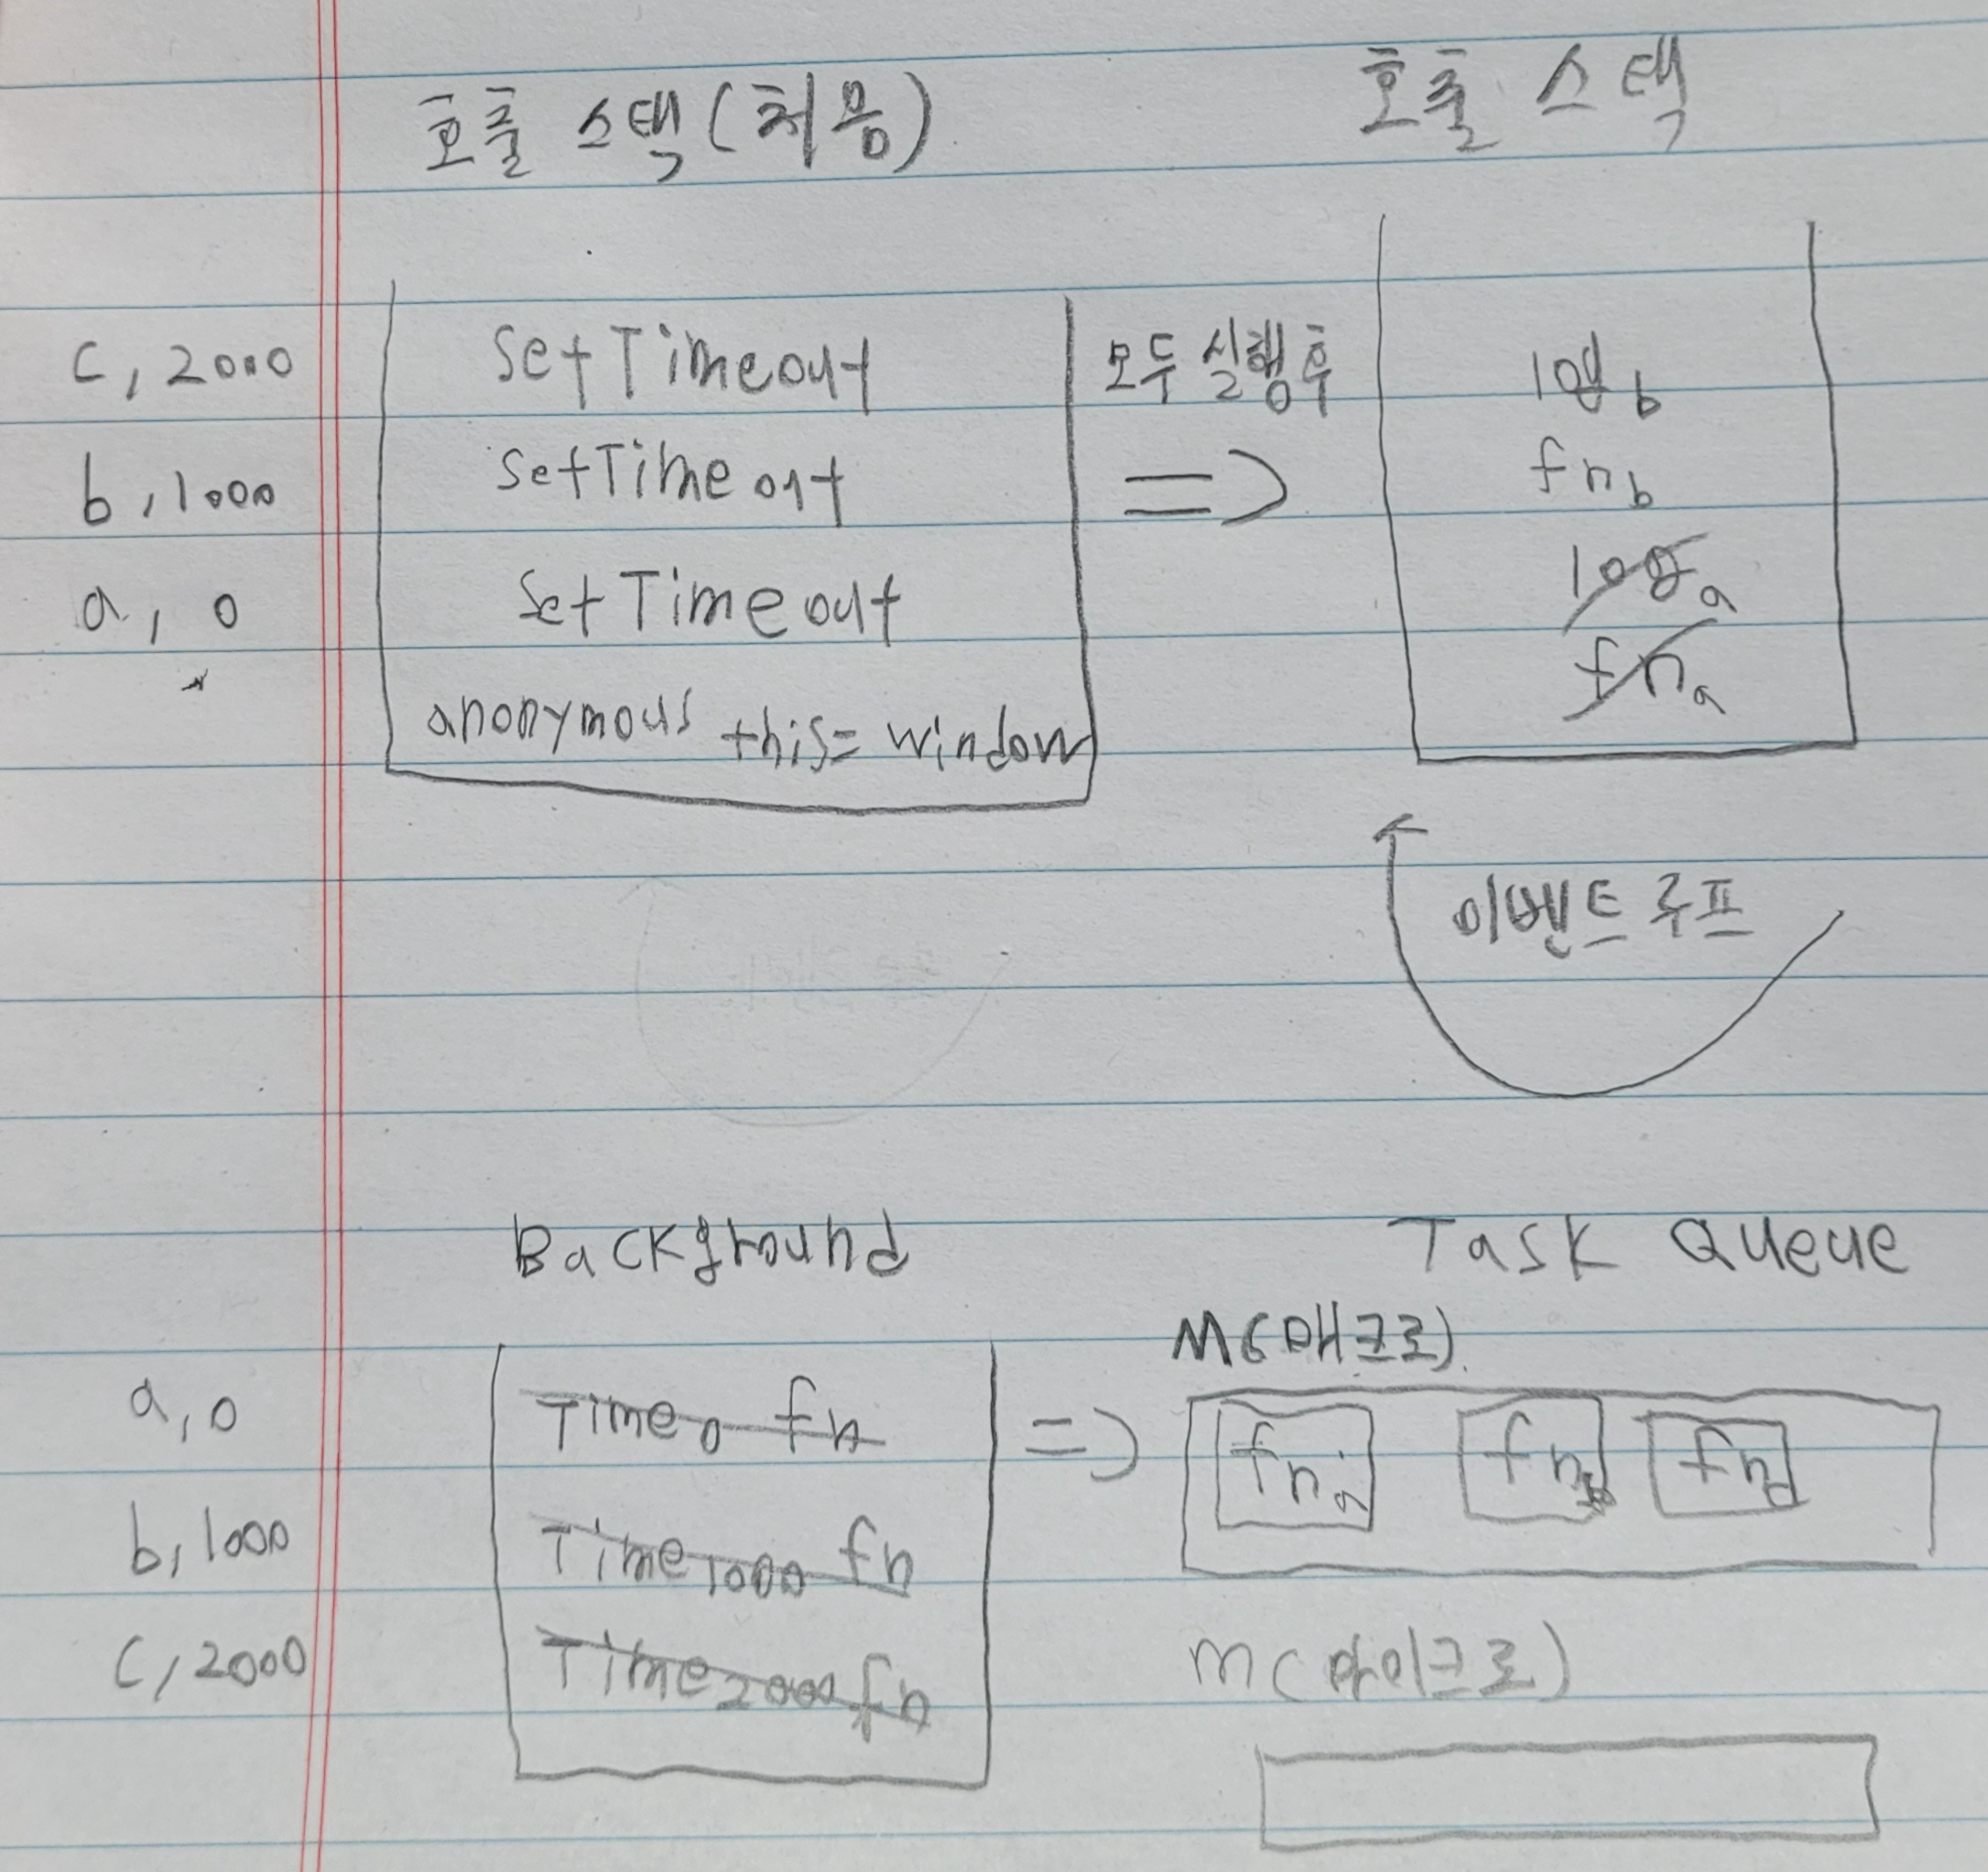 호출 스택(처음)
호출 스택
c, 2000
setTimeout
모두 실행후
log b
b, 1000
setTimeout
=>
fn b
a, 0
setTimeout
log a
fn a
anonymous this= window
이벤트 루프
Background
Task Queue
M(매크로)
a, 0
Time 0 fn
=>
fn a
fn b
fn
b, 1000
Time 1000 fn
c, 2000
Time 2000 fn
m(마이크로)